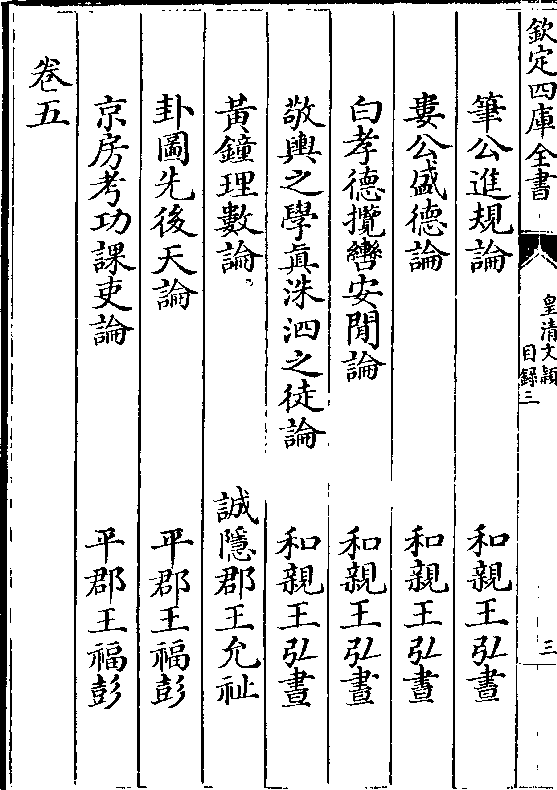 欽定四庫全書
皇清文穎
目錄三
三
筆公進規論 和親王弘晝
婁公盛德論 和親王弘晝
白孝德攬轡安閒論 和親王弘晝
敬輿之學真洙泗之徒論 和親王弘晝
黃鐘理數論 誠隱郡王允祉
卦圖先後天論 平郡王福彭
京房考功課吏論 平郡王福彭
卷五